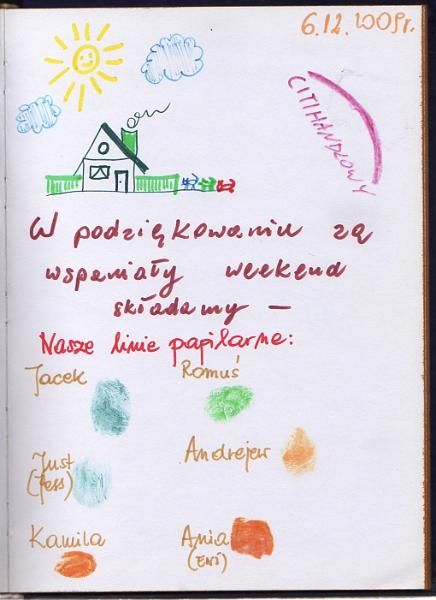 6.12.2009r.
CITIHANDLOWY
W podziękowaniu za
wspaniały weekend
składamy —
Nasze linie papilarne:
Jacek
Romuś
Just
(Jess)
Andrejew
Kamila
Ania
(ENI)